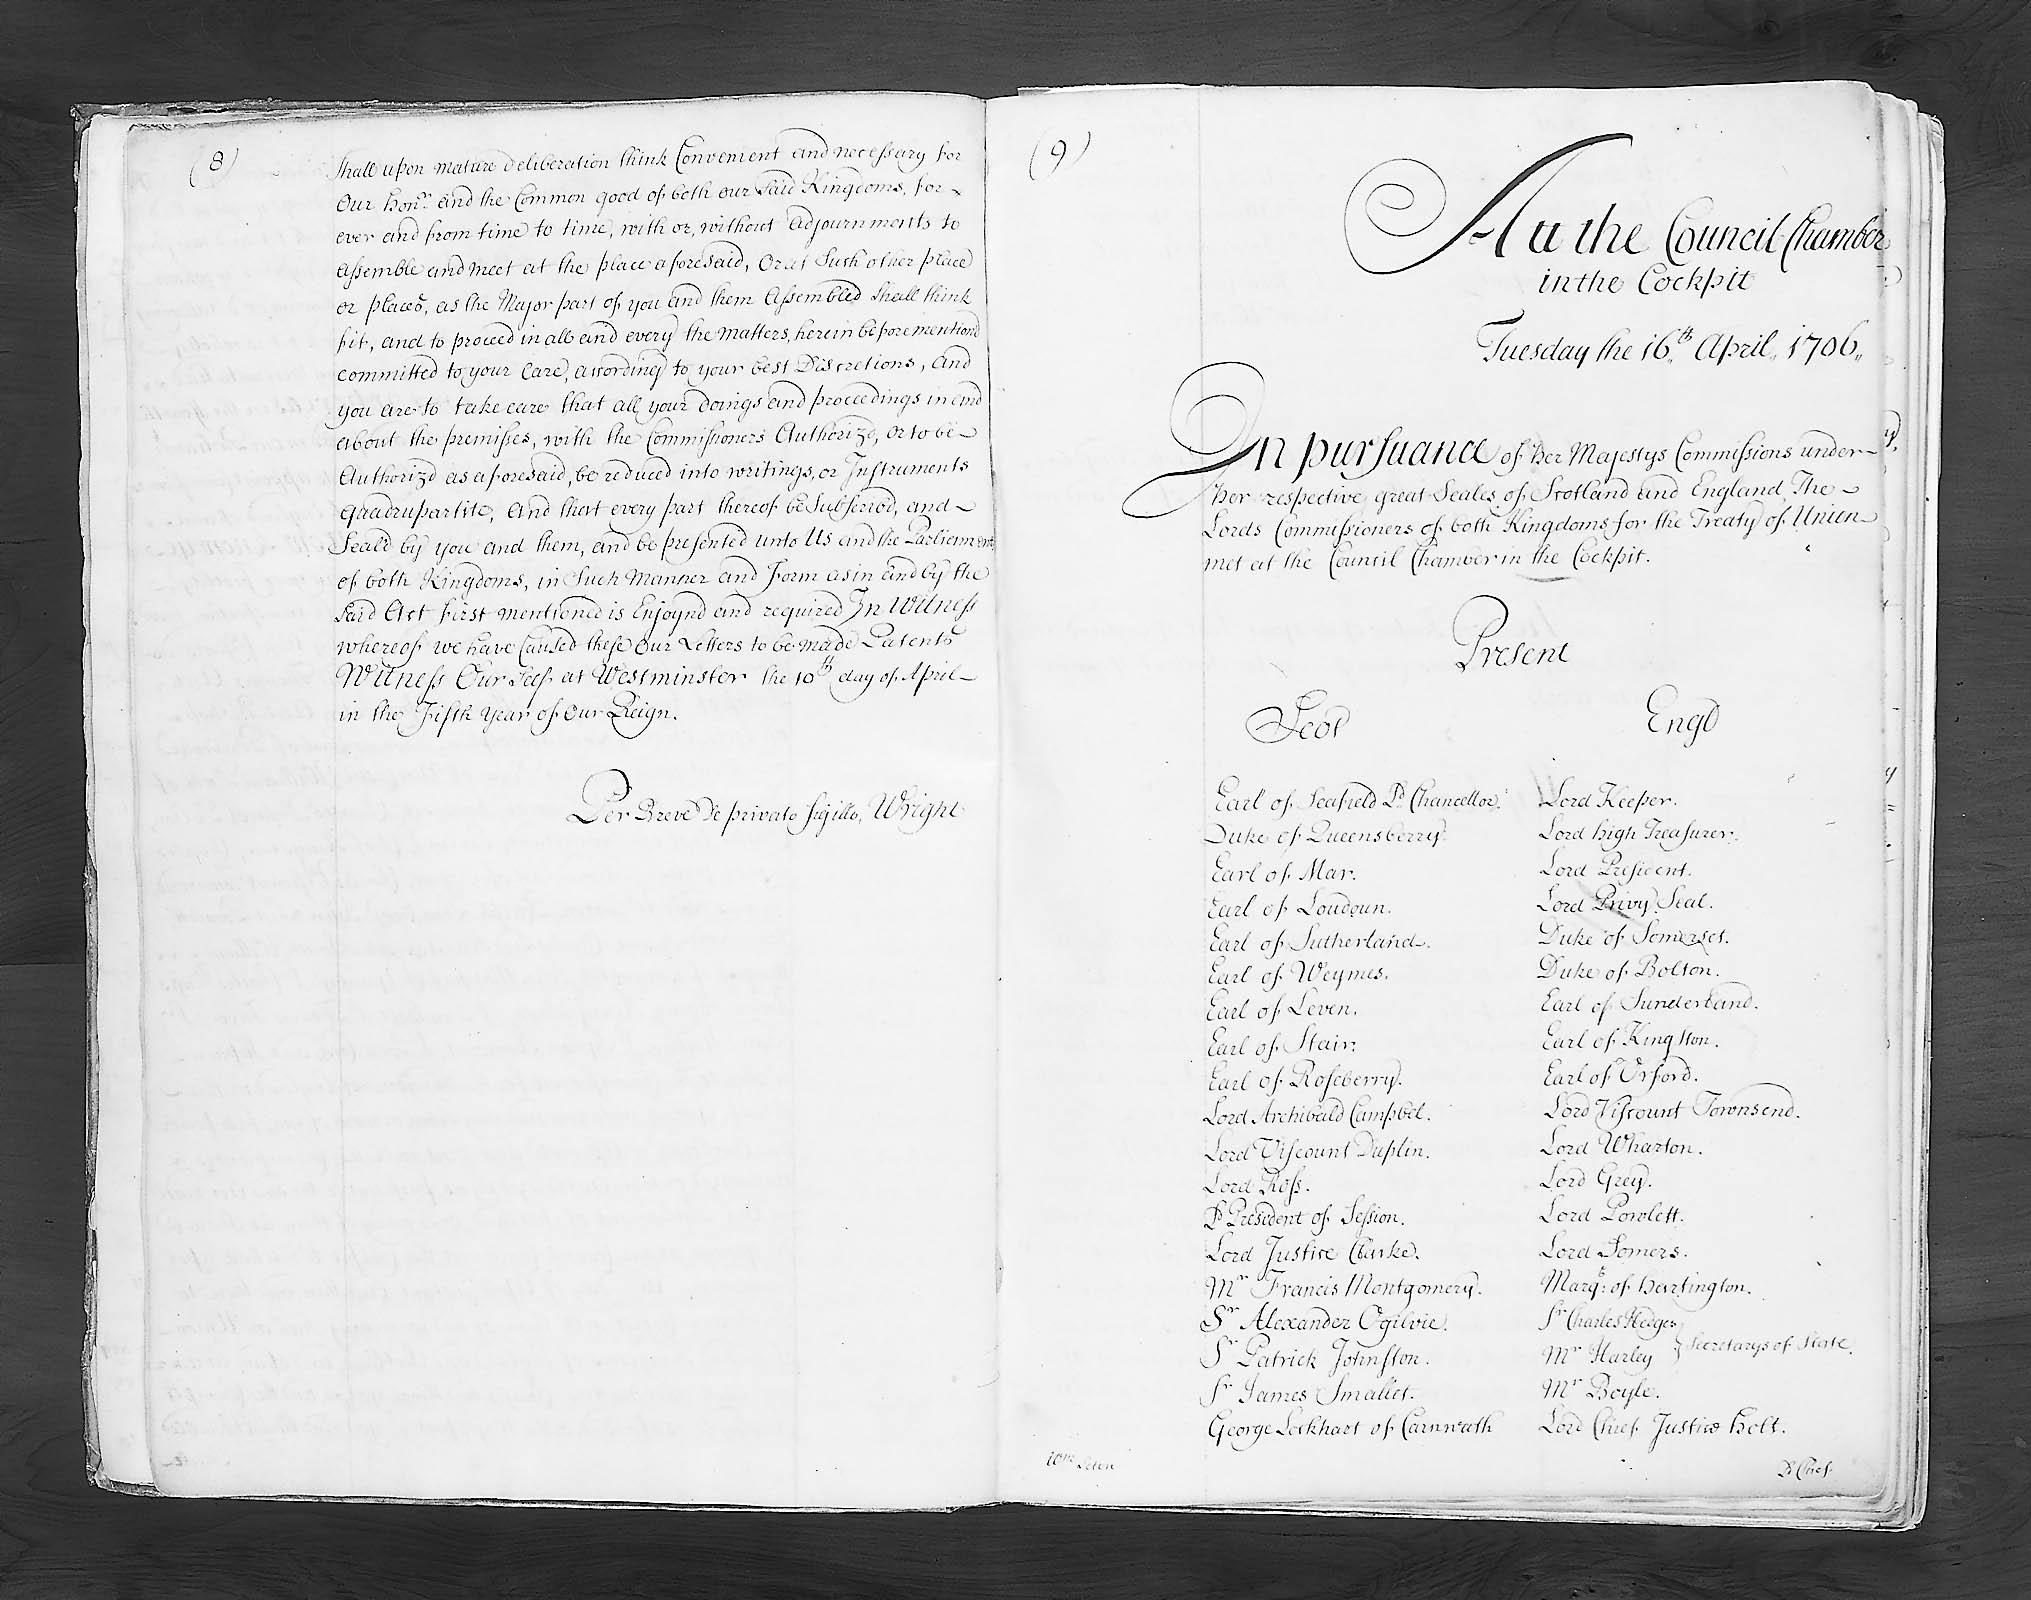 (8)
Shall upon mature deliberation think Convenient and necessary for
Our Honr. and the Common good of both our Said Kingdoms, for-
ever and from time to time, with or, without Adjournments to
assemble and meet at the place aforesaid, Or at Such other place
or places, as the Major part of you and them Assembled Shall think
fit, and to proceed in all and every the Matters, herein before mentiond
committed to your Care, according to your best Discretions, And
you are to take care that all your doings and proceedings in and
about the premisses, with the Commissioners Authorizd, or to be-
Authorizd as aforesaid, be reduced into writings, or Instruments
quadrupartite, And that every part thereof be Subscribd, and-
Seald by you and them, and be presented unto Us and the Parliament
of both Kingdoms, in Such Manner and Form as in and by the
Said Act first mentioned is Enjoynd and required In Witness
whereof we have Caused these Our Letters to be made Patents
Witness Our Self at Westminster the 10th day of April-
in the Fifth Year of Our Reign.
Per Breve De privato Sigillo, Wright
(9)
Att the Council Chamber
in the Cockpit
Tuesday the 16th. April,, 1706,,
In pursuance of Her Majestys Commissions under-
her respective great Seales of Scotland and England The-
Lords Commissioners of both Kingdoms for the Treaty of Union
met at the Council Chamber in the Cockpit.
Present
Scot Engl
Earl of Seafield Ld Chancellor. Lord Keeper.
Duke of Queensberry. Lord high Treasurer.
Earl of Mar. Lord President.
Earl of Loudoun. Lord Privy Seal.
Earl of Sutherland. Duke of Somerset.
Earl of Weymes. Duke of Bolton.
Earl of Leven. Earl of Sunderland.
Earl of Stair. Earl of Kingston.
Earl of Roseberry. Earl of Orford.
Lord Archibald Campbel. Lord Viscount Townsend.
Lord Viscount Duplin. Lord Wharton.
Lord Ross. Lord Grey.
Ld President of Session. Lord Powlett.
Lord Justice Clarke. Lord Somers.
Mr Francis Montgomery. Marqs: of Hartington.
Sr Alexander Ogilvie. Sr Charles Hedges
Sr Patrick Johnston. Mr Harley } Secretarys of State.
Sr James Smallet. Mr Boyle.
George Lockhart of Carnwath Lord Chief Justice Holt.
Wm Seton Ld Chief